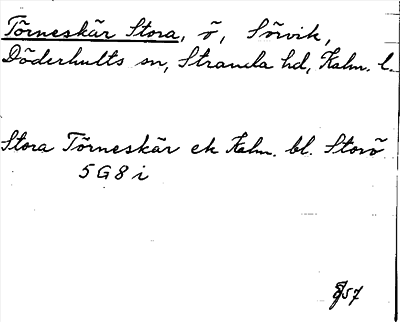 Törneskär Stora, ö, Sörvik,
Döderhults sn, Stranda hd, Kalm. l.
Stora Törneskär ek Kalm. bl. Storö
5 G 8 i
57